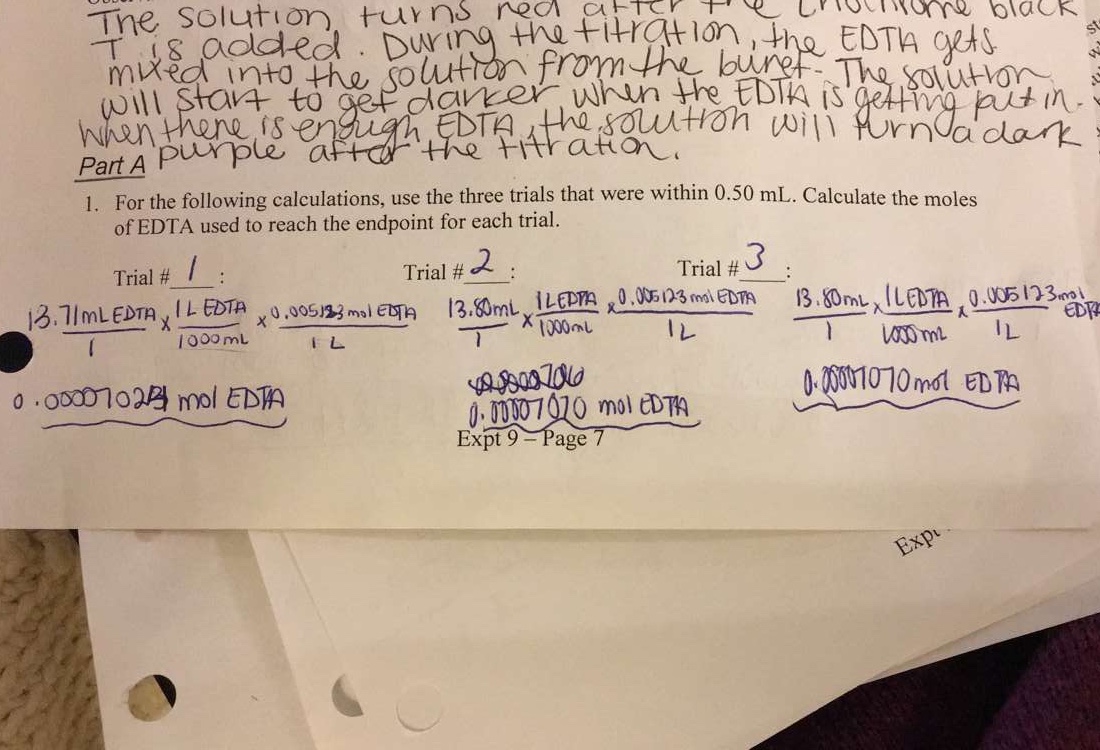 The solution turns red after the black
T is added. During the titration, the EDTA gets
mixed into the solution from the buret. The solution
will start to get darker when the EDTA is getting put in.
When there is enough EDTA, the solution will turn a dark
purple after the titration.
Part A
1. For the following calculations, use the three trials that were within 0.50 mL. Calculate the moles
of EDTA used to reach the endpoint for each trial.
Trial # 1 : Trial # 2 : Trial # 3 :
13.71mL EDTA x 1L EDTA x 0.005123 mol EDTA 13.80mL x 1L EDTA x 0.005123 mol EDTA 13.80mL x 1L EDTA x 0.005123 mol EDTA
1 1000mL 1L 1 1000mL 1L 1 1000mL 1L
mol EDTA 0.00007070 mol EDTA 0.00007070 mol EDTA
Expt 9 – Page 7